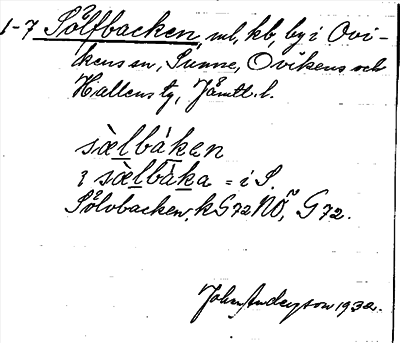 1-7 Sölfbacken, ml, kb, by i Ovi-
kens sn, Sunne, Ovikens och
Hallens tg, Jämtl. l.
sæ̀lbáken
i sæ̀lbáka = i S.
Sölvbacken, k G72NÖ, G72.
John Anderson 1932.